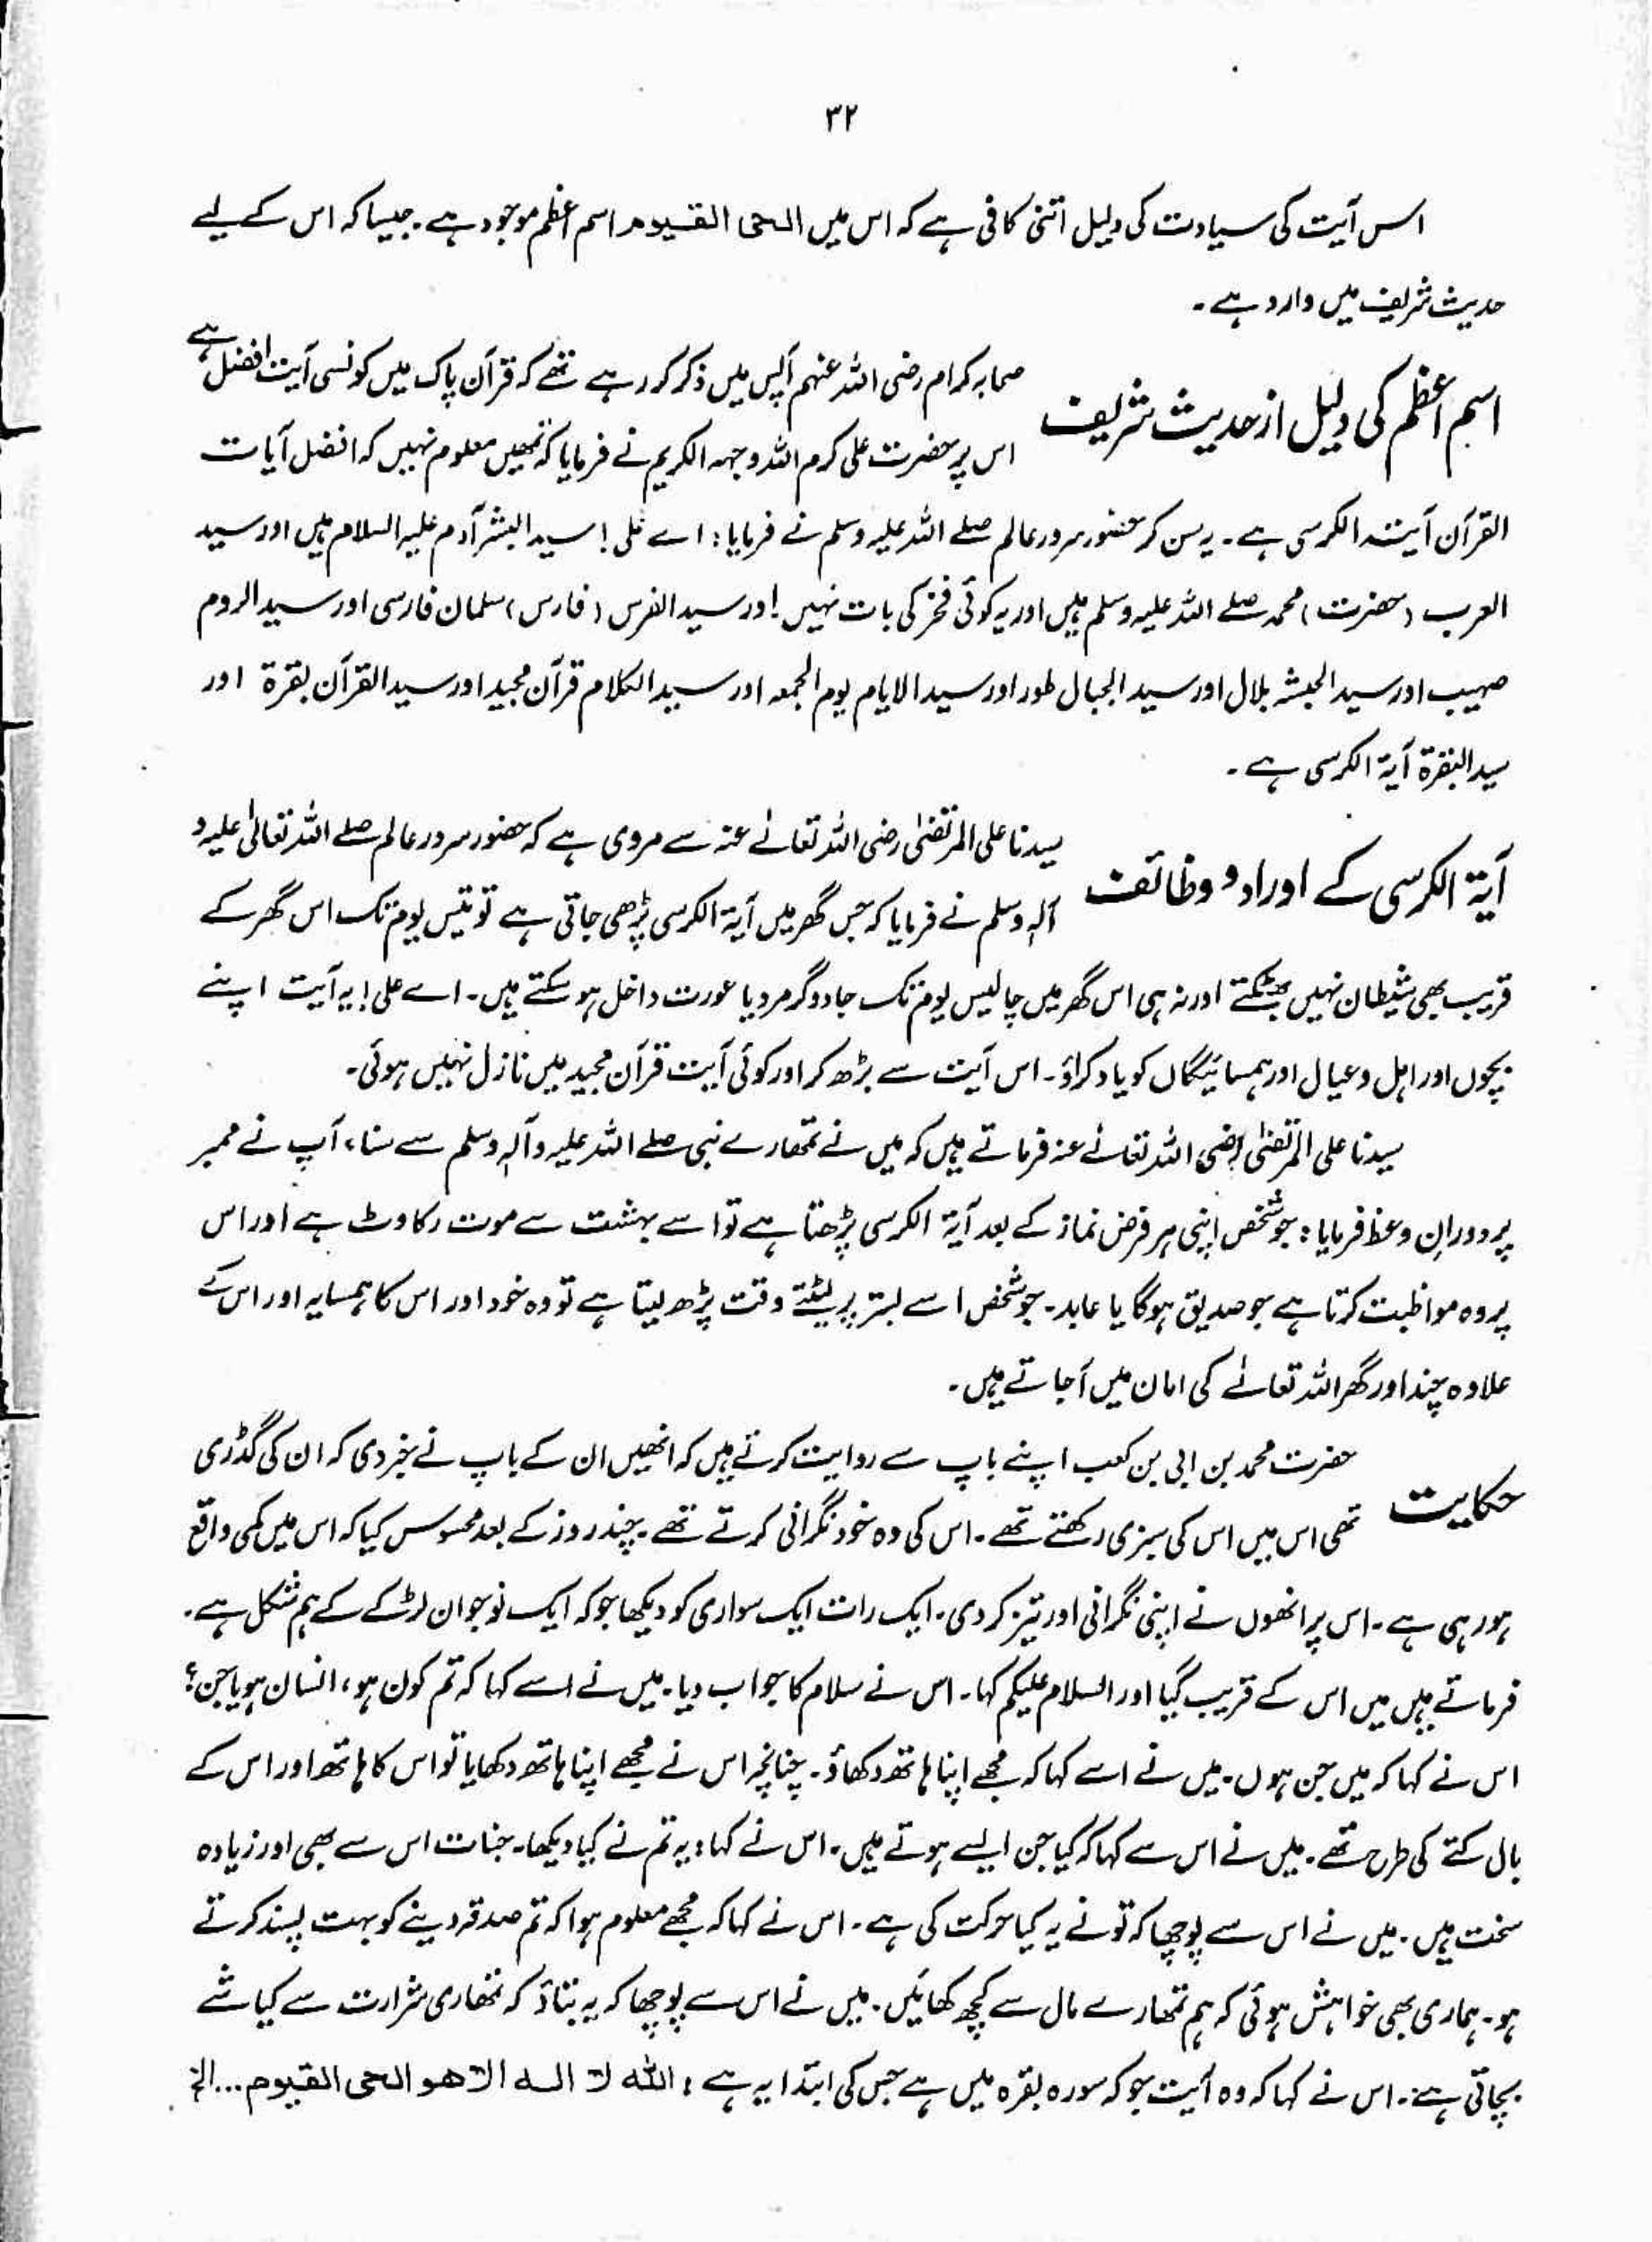 ۳۲
اس آیت کی سیادت کی دلیل اتنی کافی ہے کہ اس میں الحی القیوم اسم اعظم موجود ہے۔ جیسا کہ اس کے لیے
حدیث شریف میں وارد ہے۔
اسم اعظم کی دلیل از حدیث شریف
صحابہ کرام رضی اللہ عنہم آپس میں ذکر کر رہے تھے کہ قرآن پاک میں کونسی آیت افضل ہے
اس پر حضرت علی کرم اللہ وجہہ الکریم نے فرمایا کہ تمھیں معلوم نہیں کہ افضل آیات
القرآن آیتہ الکرسی ہے۔ یہ سن کر حضور سرور عالم صلے اللہ علیہ وسلم نے فرمایا: اے علی! سید البشر آدم علیہ السلام ہیں اور سید
العرب (حضرت) محمد صلے اللہ علیہ وسلم ہیں اور یہ کوئی فخر کی بات نہیں! اور سید الفرس (فارس) سلمان فارسی اور سید الروم
صہیب اور سید الحبشہ بلال اور سید الجبال طور اور سید الایام یوم الجمعہ اور سید الکلام قرآن مجید اور سید القرآن بقرۃ اور
سید البقرۃ آیۃ الکرسی ہے۔
آیۃ الکرسی کے اوراد و وظائف
سیدنا علی المرتضیٰ رضی اللہ تعالےٰ عنہ سے مروی ہے کہ حضور سرور عالم صلے اللہ تعالیٰ علیہ و
آلہٖ وسلم نے فرمایا کہ جس گھر میں آیۃ الکرسی پڑھی جاتی ہے تو تیس یوم تک اس گھر کے
قریب بھی شیطان نہیں بھٹکتے اور نہ ہی اس گھر میں چالیس یوم تک جادوگر مرد یا عورت داخل ہو سکتے ہیں۔ اے علی! یہ آیت اپنے
بچوں اور اہل و عیال اور ہمسائیگاں کو یاد کراؤ۔ اس آیت سے بڑھ کر اور کوئی آیت قرآن مجید میں نازل نہیں ہوئی۔
سیدنا علی المرتضیٰ رضی اللہ تعالےٰ عنہ فرماتے ہیں کہ میں نے تمھارے نبی صلے اللہ علیہ وآلہٖ وسلم سے سنا، آپ نے ممبر
پر دورانِ وعظ فرمایا: جو شخص اپنی ہر فرض نماز کے بعد آیۃ الکرسی پڑھتا ہے تو اسے بہشت سے موت رکاوٹ ہے اور اس
پر وہ مواظبت کرتا ہے جو صدیق ہوگا یا عابد۔ جو شخص اسے بستر پر لیٹتے وقت پڑھ لیتا ہے تو وہ خود اور اس کا ہمسایہ اور اس کے
علاوہ چند اور گھر اللہ تعالےٰ کی امان میں آجاتے ہیں۔
حکایت
حضرت محمد بن ابی بن کعب اپنے باپ سے روایت کرتے ہیں کہ انھیں ان کے باپ نے خبر دی کہ ان کی گڈری
تھی اس میں اس کی سبزی رکھتے تھے۔ اس کی وہ خود نگرانی کرتے تھے۔ چند روز کے بعد محسوس کیا کہ اس میں کمی واقع
ہو رہی ہے۔ اس پر انھوں نے اپنی نگرانی اور تیز کر دی۔ ایک رات ایک سواری کو دیکھا جو کہ ایک نوجوان لڑکے کے ہم شکل ہے۔
فرماتے ہیں میں اس کے قریب گیا اور السلام علیکم کہا۔ اس نے سلام کا جواب دیا۔ میں نے اسے کہا کہ تم کون ہو، انسان ہو یا جن؟
اس نے کہا کہ میں جن ہوں۔ میں نے اسے کہا کہ مجھے اپنا ہاتھ دکھاؤ۔ چنانچہ اس نے مجھے اپنا ہاتھ دکھایا تو اس کا ہاتھ اور اس کے
بال کتے کی طرح تھے۔ میں نے اس سے کہا کہ کیا جن ایسے ہوتے ہیں۔ اس نے کہا: یہ تم نے کیا دیکھا۔ جنات اس سے بھی اور زیادہ
سخت ہیں۔ میں نے اس سے پوچھا کہ تو نے یہ کیا حرکت کی ہے۔ اس نے کہا کہ مجھے معلوم ہوا کہ تم صدقہ دینے کو بہت پسند کرتے
ہو۔ ہماری بھی خواہش ہوئی کہ ہم تمھارے مال سے کچھ کھائیں۔ میں نے اس سے پوچھا کہ یہ بتاؤ کہ تمھاری شرارت سے کیا شے
بچاتی ہے۔ اس نے کہا کہ وہ آیت جو کہ سورہ بقرہ میں ہے جس کی ابتدا یہ ہے: اللہ لا الہ الا ھو الحی القیوم... الخ